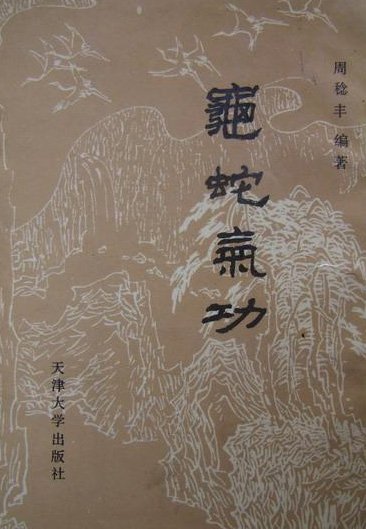 周稔丰 编著
龜蛇氣功
天津大学出版社